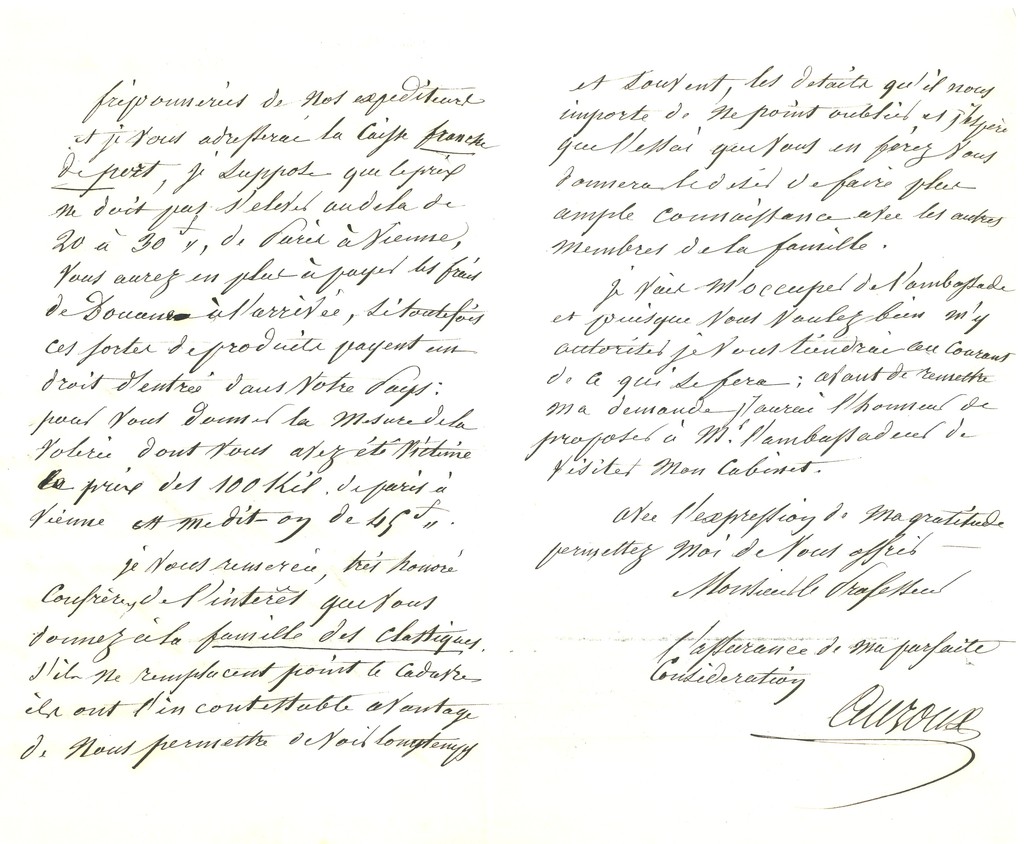 friponneries de nos expéditeurs
et je vous adresserai la Caisse franche
de port, je suppose que le prix
ne doit pas s'élever audela de
20 à 30 f,, de Paris à Vienne,
Vous aurez en plus à payer les frais
de Douane à l'arrivée, si toutefois
ces sortes de produits payent un
droit d'entrée dans Votre Pays:
pour vous donner la mesure de la
Volerie dont vous avez été Victime
le prix des 100 Kil. de paris à
Vienne est me dit-on de 45 f,,.
je vous remercie, très honoré
Confrère, de l'intérêt que vous
donnez à la famille des clastiques.
S'ils ne remplacent point le cadavre
ils ont l'incontestable avantage
de nous permettre de voir longtemps
et souvent, les détails qu'il nous
importe de ne point oublier et j'espère
que l'essai que vous en ferez vous
donnera le désir de faire plus
ample connaissance avec les autres
membres de la famille.
je vais m'occuper de l'ambassade
et puisque vous voulez bien m'y
autoriser je vous tiendrai au courant
de ce qui se fera; avant de remettre
ma demande j'aurai l'honneur de
proposer à Mr. l'ambassadeur de
visiter mon Cabinet.
avec l'expression de ma gratitude
permettez moi de vous offrir —
Monsieur le Professeur
l'assurance de ma parfaite
Considération
Auzoux